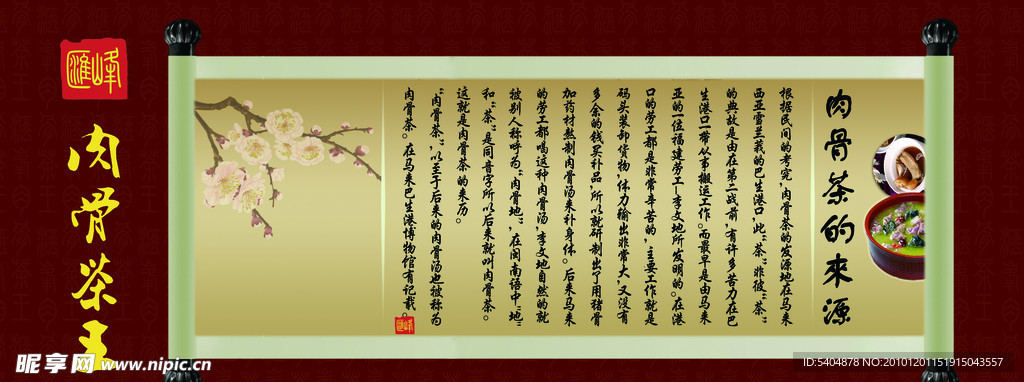 匯峰
肉骨茶王
肉骨茶的來源
根据民间的考究,肉骨茶的发源地在马来
西亚雪兰莪的巴生港口,此“茶”非彼“茶”
的典故是由在第二战前,有许多苦力在巴
生港口一带从事搬运工作。而最早是由马来
亚的一位福建劳工,李文地所发明的。在港
口的劳工都是非常辛苦的,主要工作就是
码头装卸货物,体力输出非常大,又没有
多余的钱买补品,所以就研制出了用猪骨
加药材熬制肉骨汤来补身体。后来马来
的劳工都喝这种肉骨汤,李文地自然的就
被别人称呼为“肉骨地”,在闽南语中“地”
和“茶”是同音字所以后来就叫肉骨茶。
这就是肉骨茶的来历。
“肉骨茶”,以至于后来的肉骨汤也被称为
肉骨茶。在马来巴生港博物馆有记载。
匯峰
昵享网 www.nipic.cn
ID:5404878 NO:20101201151915043557